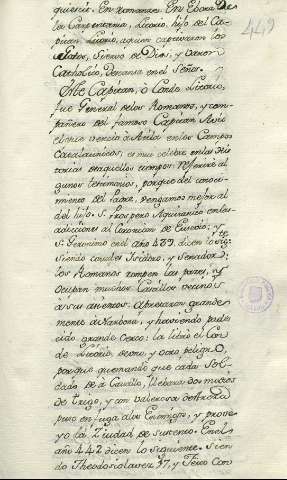 449
quiescit. En Romance. En Ebora De
la Carpentania, Litorio, hijo del Ca-
pitan Litorio, a quien captivaron los
Godos, Siervo de Dios, y Varon
Catholico, Descansa en el Señor.
Este Capitan, o Conde Litorio,
fue General de los Romanos, y com-
pañero del famoso Capitan Aecio
el que vencio a Atila en los Campos
Catalaunicos, es muy celebre en las His-
torias de aquellos tiempos. Referiré al
gunos testimonios, porque del conoci-
miento del Padre, vengamos mejor al
del hijo. S. Prospero Aquitanico en las
addicciones al Chronicon de Eusebio, y
S. Geronimo en el año 439. dicen lo sig.te
Siendo consules Theodosio, y Senador:
los Romanos rompen las pazes, y
ocupan muchos Castillos vecinos
à sus asientos. Apretaron grande
mente à Narbona, y haviendo pade
cido grande cerco: la libró el Con
de Litorio de uno, y otro peligro
porque queriendo que cada Sol
dado de à Cavallo, llebara dos modios
de trigo, y con valerosa destreza
puso en fuga a los Enemigos, y prove
yó la Ciudad de sustento. En el
año 442 dicen lo siguiente. Sien
do Theodosio la vez 17, y Festo Con